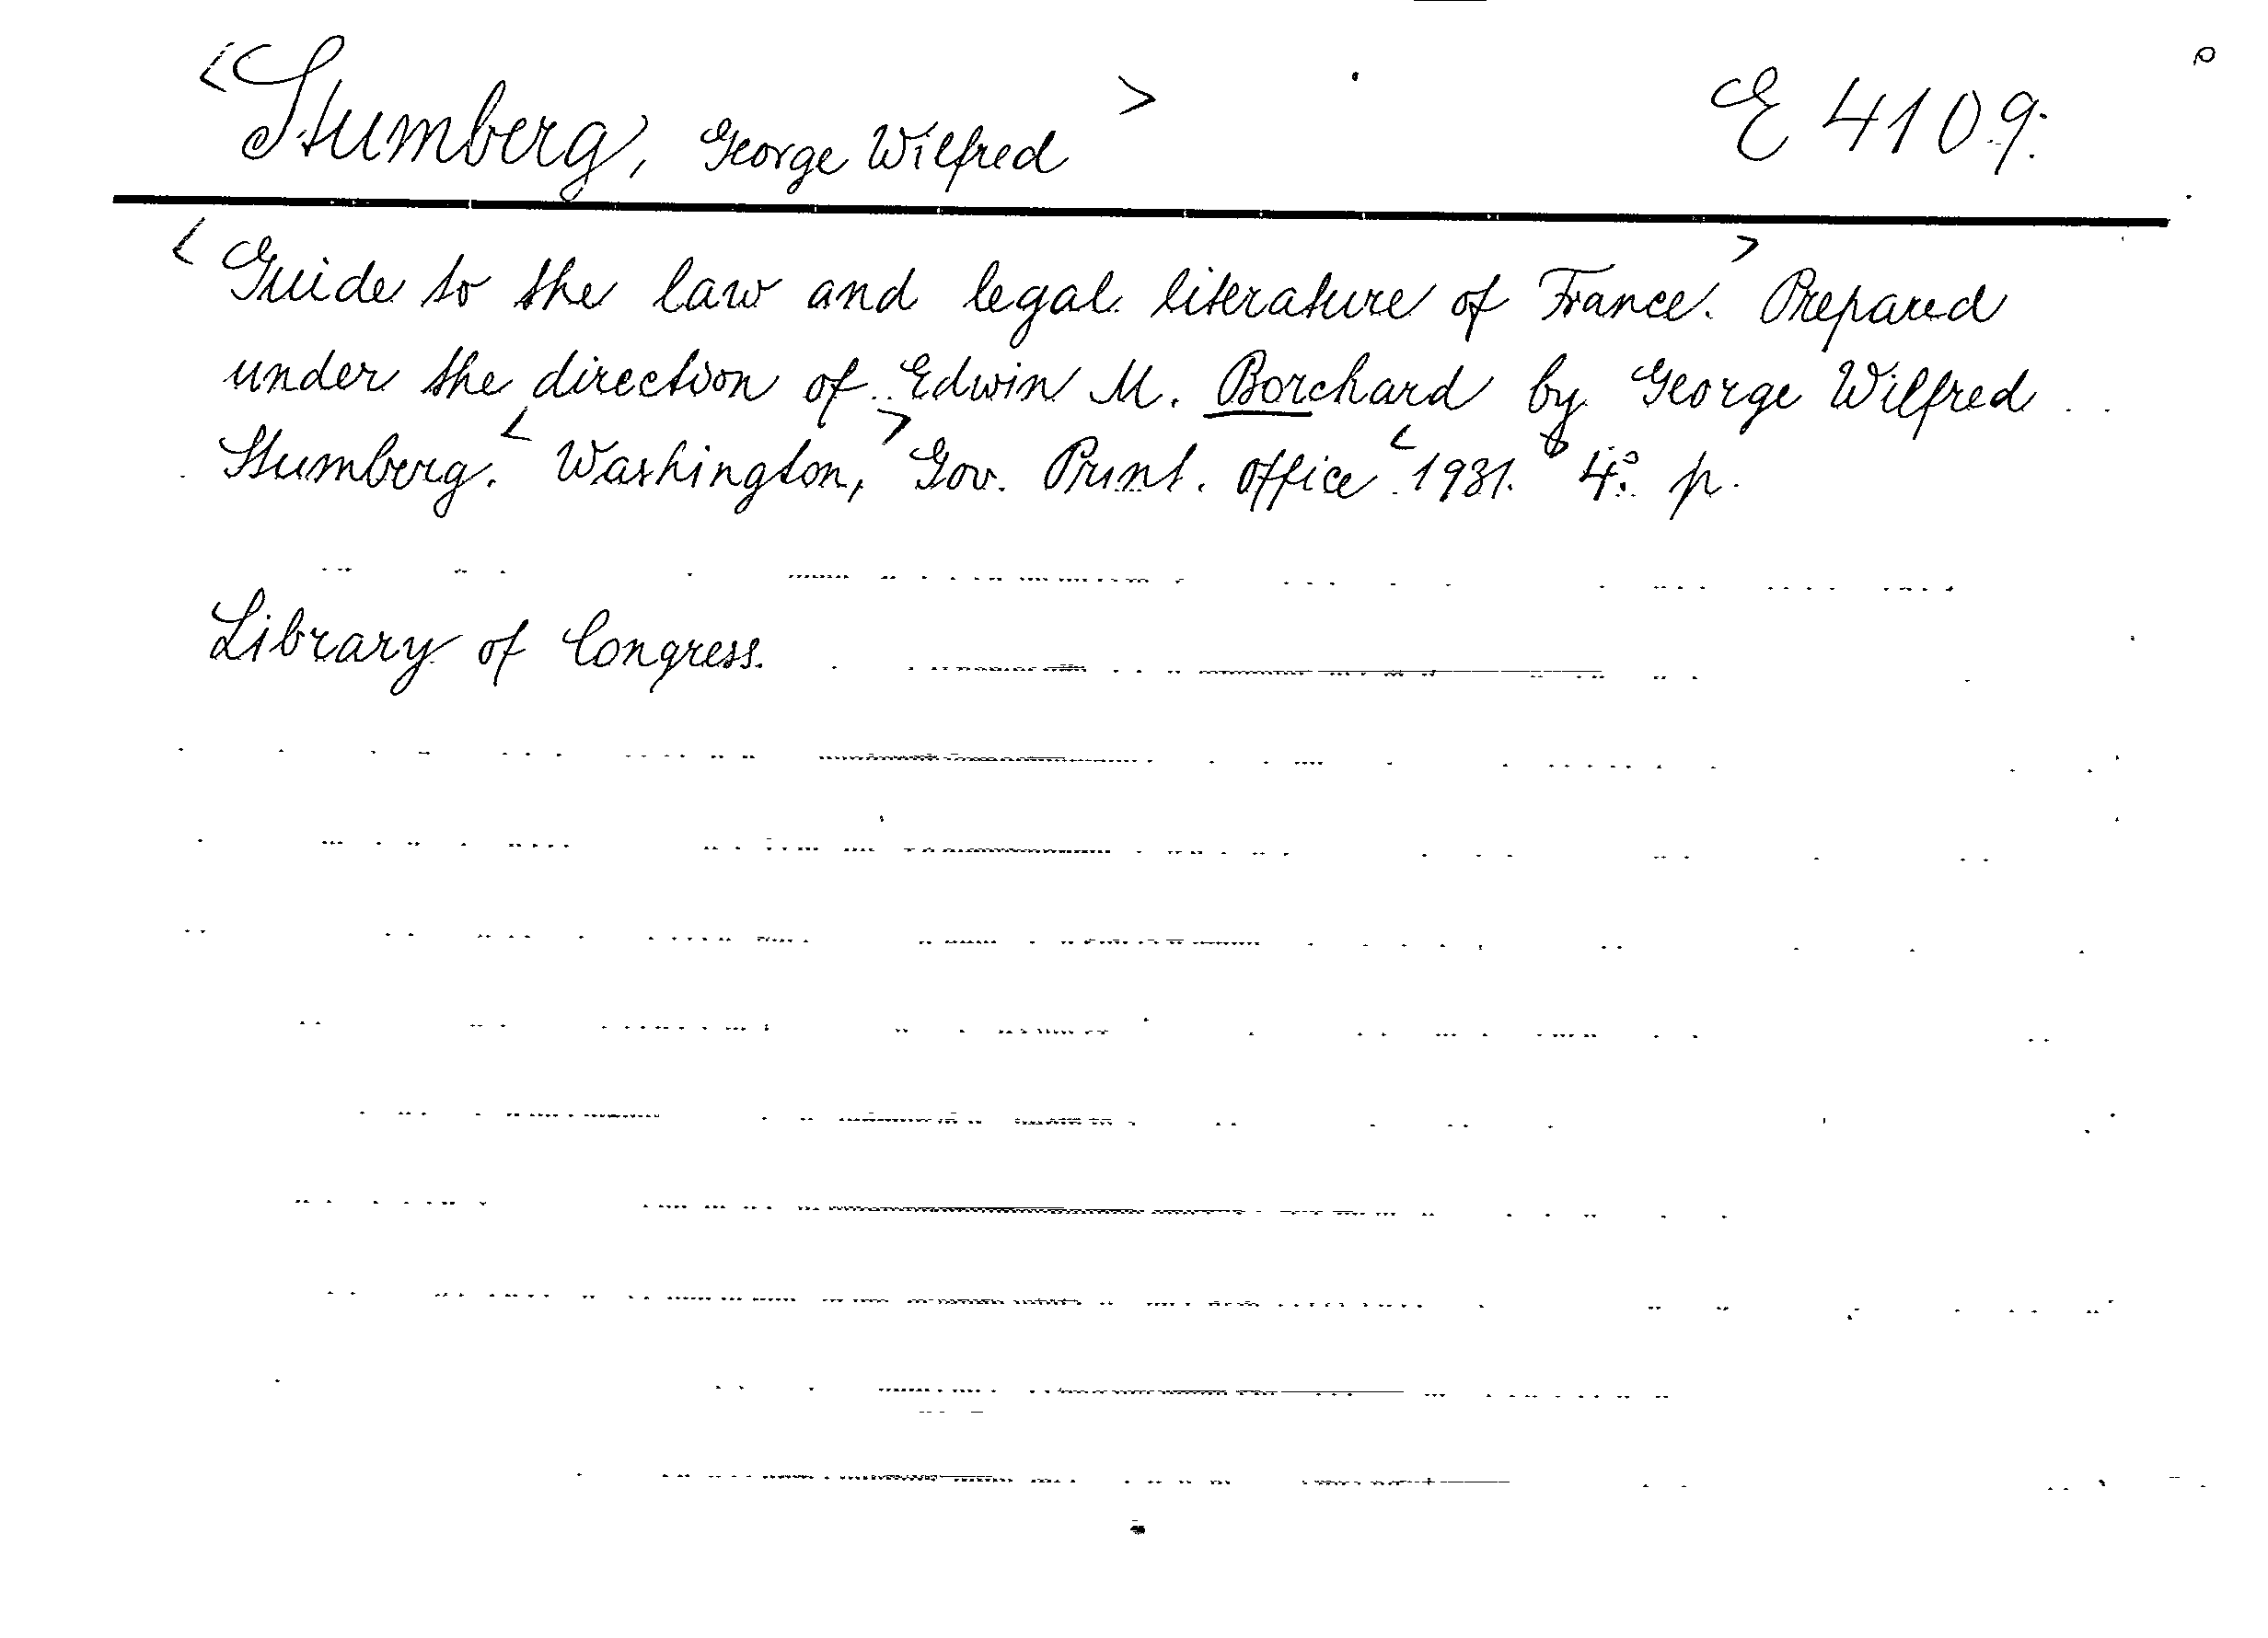 <Stumberg, George Wilfred> E 4109.
<Guide to the law and legal literature of France.> Prepared
under the direction of Edwin M. Borchard by George Wilfred
Stumberg. <Washington,> Gov. Print. office <1931.> 4° p.
Library of Congress.